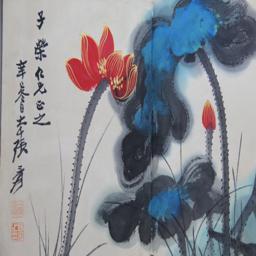 子榮仁兄正之
辛春日大千張爰